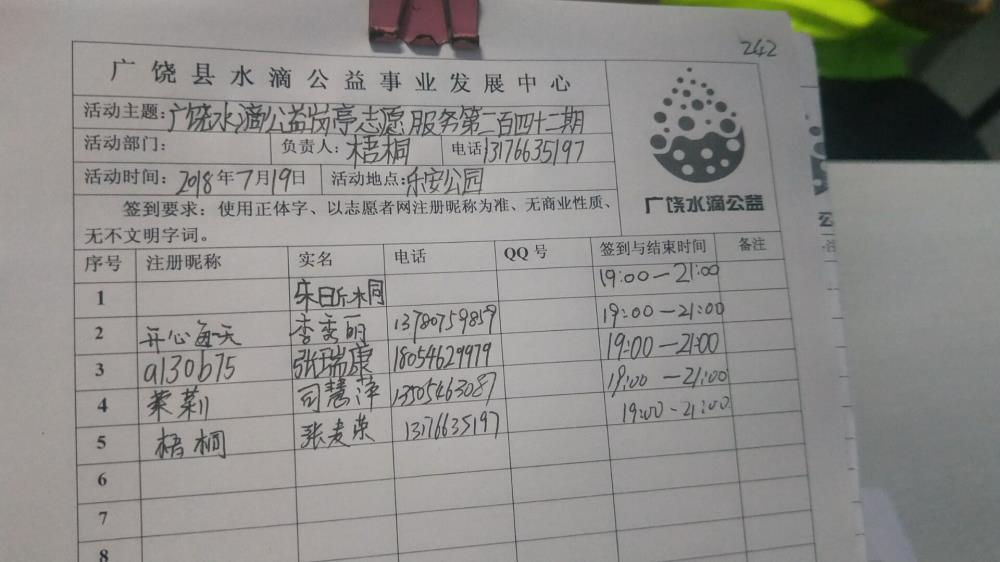 242
广饶县水滴公益事业发展中心
活动主题:广饶水滴公益岗亭志愿服务第二百四十二期
活动部门: 负责人:梧桐 电话13176635197
活动时间:2018年7月19日 活动地点:乐安公园
签到要求:使用正体字、以志愿者网注册昵称为准、无商业性质、
无不文明字词。
广饶水滴公益
序号 注册昵称 实名 电话 QQ号 签到与结束时间 备注
1 19:00-21:00
2 开心每天 李雯丽 13780759859 19:00-21:00
3 a130b75 张瑞康 18054629979 19:00-21:00
4 茉莉 司慧萍 13505463087 19:00-21:00
5 梧桐 张麦荣 13176635197 19:00-21:00
6
7
8